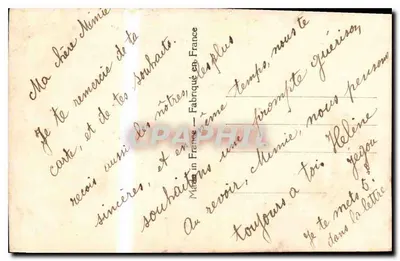 Ma chère Mimie
Je te remercie de ta
carte, et de tes souhaits.
reçois aussi les nôtres, les plus
sincères, et en même temps, nous te
souhaitons une prompte guérison,
Au revoir, Mimie, nous pensons
toujours a toi. Hélène
Je te mets 6
dans la lettre
Made in France — Fabriqué en France